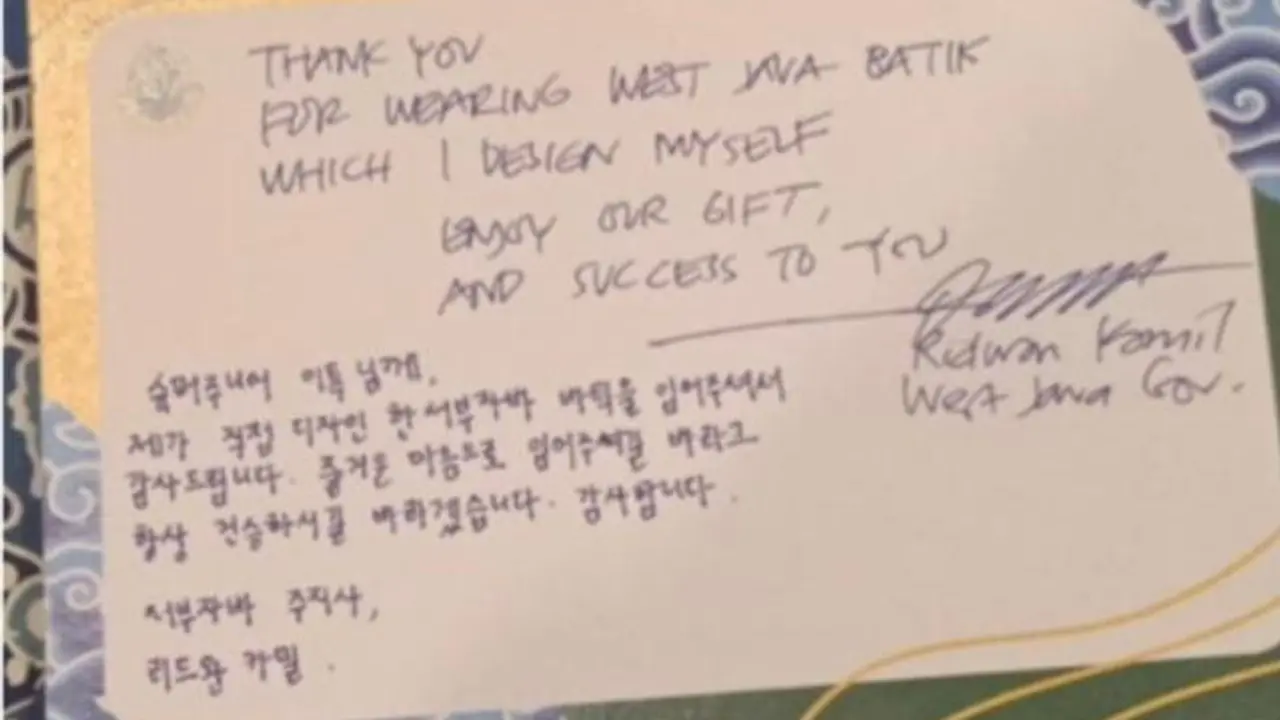 THANK YOU
FOR WEARING WEST JAVA BATIK
WHICH I DESIGN MYSELF
ENJOY OUR GIFT,
AND SUCCESS TO YOU
Ridwan Kamil
West Java Gov.
슈퍼주니어 이특 님께,
제가 직접 디자인 한 서부자바 바틱을 입어주셔서
감사드립니다. 즐거운 마음으로 입어주시길 바라고
항상 건승하시길 바라겠습니다. 감사합니다.
서부자바 주지사,
리드완 카밀.